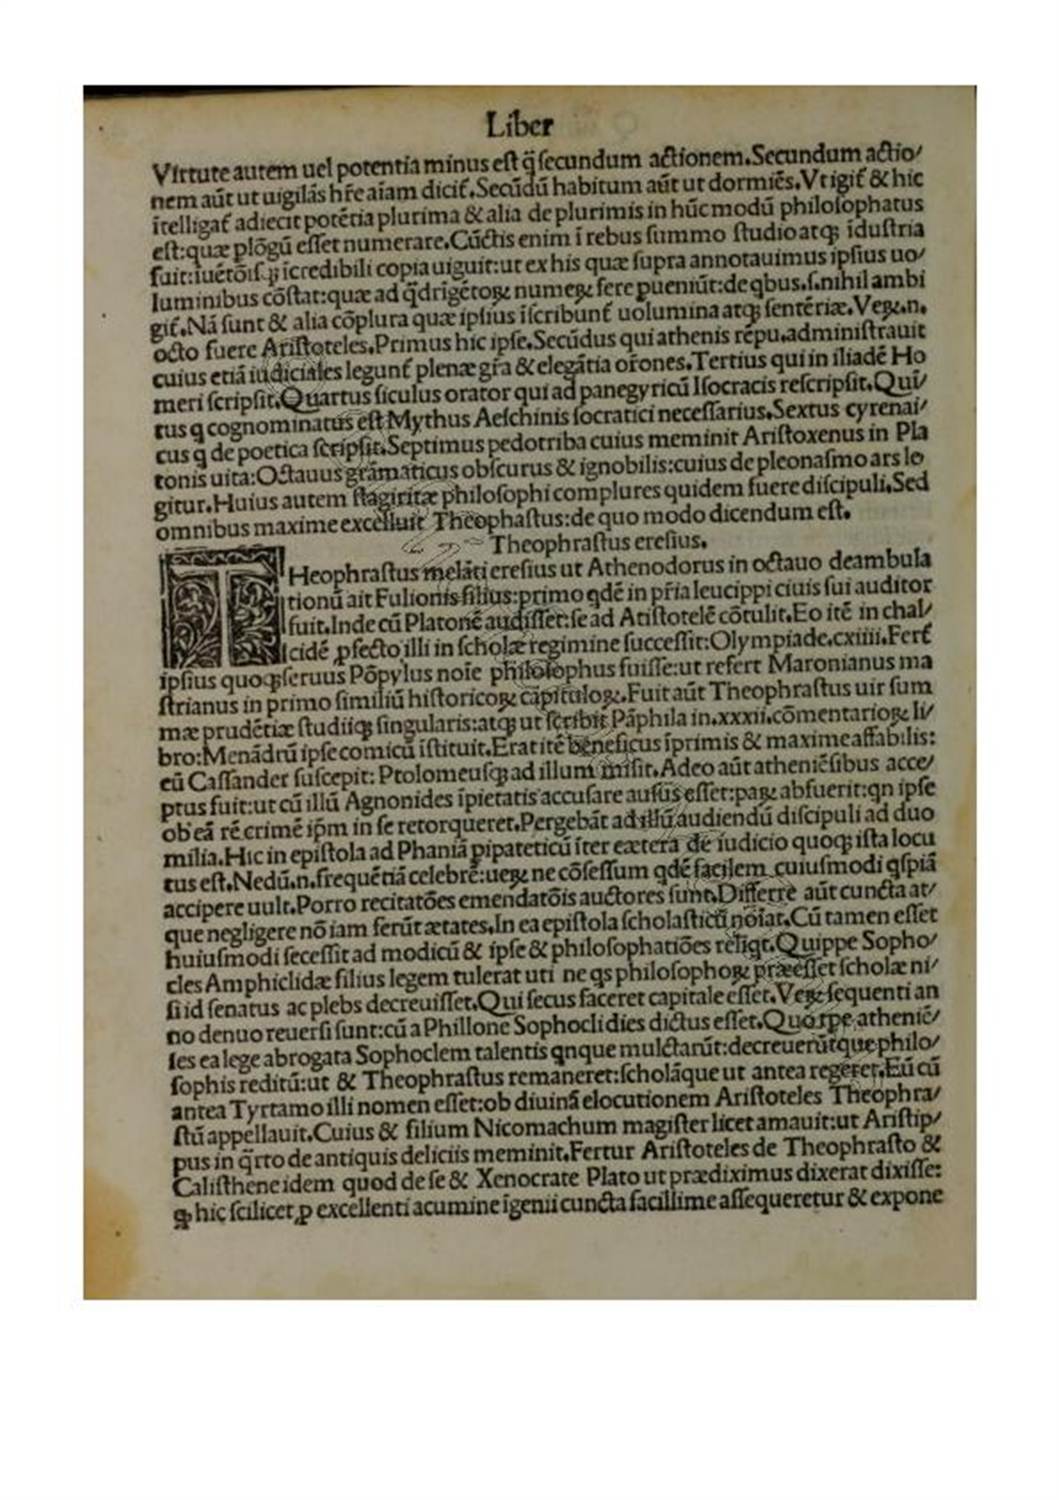 Liber
Virtute autem uel potentia minus est q̃ secundum actionem.Secundum actio/
nem aũt ut uigilãs hr̃e aĩam dicit̃.Secũdũ habitum aũt ut dormiẽs.Vt igit̃ & hic
ĩtelligat̃ adiecit potẽtia plurima & alia de plurimis in hũc modũ philosophatus
est:quæ plõgũ esset numerare.Cũctis enim ĩ rebus summo studio atqꝫ ĩdustria
fuit:Iuẽtõĩsqꝫ ĩcredibili copia uiguit:ut ex his quæ supra annotauimus ipsius uo/
luminibus cõstat:quæ ad q̃drigẽtoꝝ numeꝝ fere ꝑueniũt:de qbus.s.nihil ambi
git̃.Nã sunt & alia cõplura quæ ipsius ĩscribunt̃ uolumina atqꝫ sentẽriæ.Veꝝ.n.
octo fuere Aristoteles.Primus hic ipse.Secũdus qui athenis rẽpu.administrauit
cuius etiã iudiciales legunt̃ plenæ gr̃a & elegãtia or̃ones.Tertius qui in iliadẽ Ho
meri scripsit.Quartus siculus orator qui ad panegyricũ Isocracis rescripsit.Quĩ/
tus q cognominatus est Mythus Aeschinis socratici necessarius.Sextus cyrenai/
cus q de poetica scripsit.Septimus pedotriba cuius meminit Aristoxenus in Pla
tonis uita:Octauus grãmaticus obscurus & ignobilis:cuius de pleonasmo ars le
gitur.Huius autem stagiritæ philosophi complures quidem fuere discipuli.Sed
omnibus maxime excelluit Theophastus:de quo modo dicendum est.
Theophrastus eresius.
THeophrastus melãti eresius ut Athenodorus in octauo deambula
tionũ ait Fulionis filius:primo qdẽ in pr̃ia leucippi ciuis sui auditor
fuit.Inde cũ Platonẽ audisset:se ad Atistotelẽ cõtulit.Eo itẽ in chal/
cidẽ ꝓfecto illi in scholæ regimine successit:Olympiade.cxiiii.Fert̃
ipsius quoqꝫ seruus Põpylus noĩe philosophus fuisse:ut refert Maronianus ma
strianus in primo similiũ historicoꝝ capituloꝝ.Fuit aũt Theophrastus uir sum
mæ prudẽtiæ studiiqꝫ singularis:atqꝫ ut scribit Pãphila in.xxxii.cõmentarioꝝ li/
bro:Menãdrũ ipse comicũ ĩstituit.Erat itẽ beneficus ĩprimis & maxime affabilis:
eũ Cassander suscepit: Ptolomeusqꝫ ad illum misit.Adeo aũt atheniẽsibus acce/
ptus fuit:ut cũ illũ Agnonides ĩpietatis accusare ausus esset:paꝝ abfuerit:qn ipse
ob eã rẽ crimẽ ip̃m in se retorqueret.Pergebãt ad illũ audiendũ discipuli ad duo
milia.Hic in epistola ad Phaniã pipateticũ ĩter cætera de iudicio quoqꝫ ista locu
tus est.Nedũ.n.frequẽtiã celebrẽ:ueꝝ ne cõsessum qdẽ facilem cuiusmodi qspiã
accipere uult.Porro recitatões emendatõis auctores sunt.Differre aũt cuncta at/
que negligere nõ iam ferũt ætates.In ea epistola scholasticũ nõĩat.Cũ tamen esset
huiusmodi secessit ad modicũ & ipse & philosophatiões reliqt.Quippe Sopho/
cles Amphiclidæ filius legem tulerat uti ne qs philosophoꝝ præesset scholæ ni/
si id senatus ac plebs decreuisset.Qui secus faceret capitale esset.Veꝝ sequenti an
no denuo reuersi sunt:cũ a Phillone Sophocli dies dictus esset.Quo tpe atheniẽ/
ses ea lege abrogata Sophoclem talentis qnque mulctarũt:decreuerũtque philo/
sophis reditũ:ut & Theophrastus remaneret:scholãque ut antea regeret.Eũ cũ
antea Tyrtamo illi nomen esset:ob diuinã elocutionem Aristoteles Theophra/
stũ appellauit.Cuius & filium Nicomachum magister licet amauit:ut Aristip/
pus in q̃rto de antiquis deliciis meminit.Fertur Aristoteles de Theophrasto &
Calisthene idem quod de se & Xenocrate Plato ut prædiximus dixerat dixisse:
ꝙ hic scilicet ꝑ excellenti acumine ĩgenii cuncta facillime assequeretur & expone